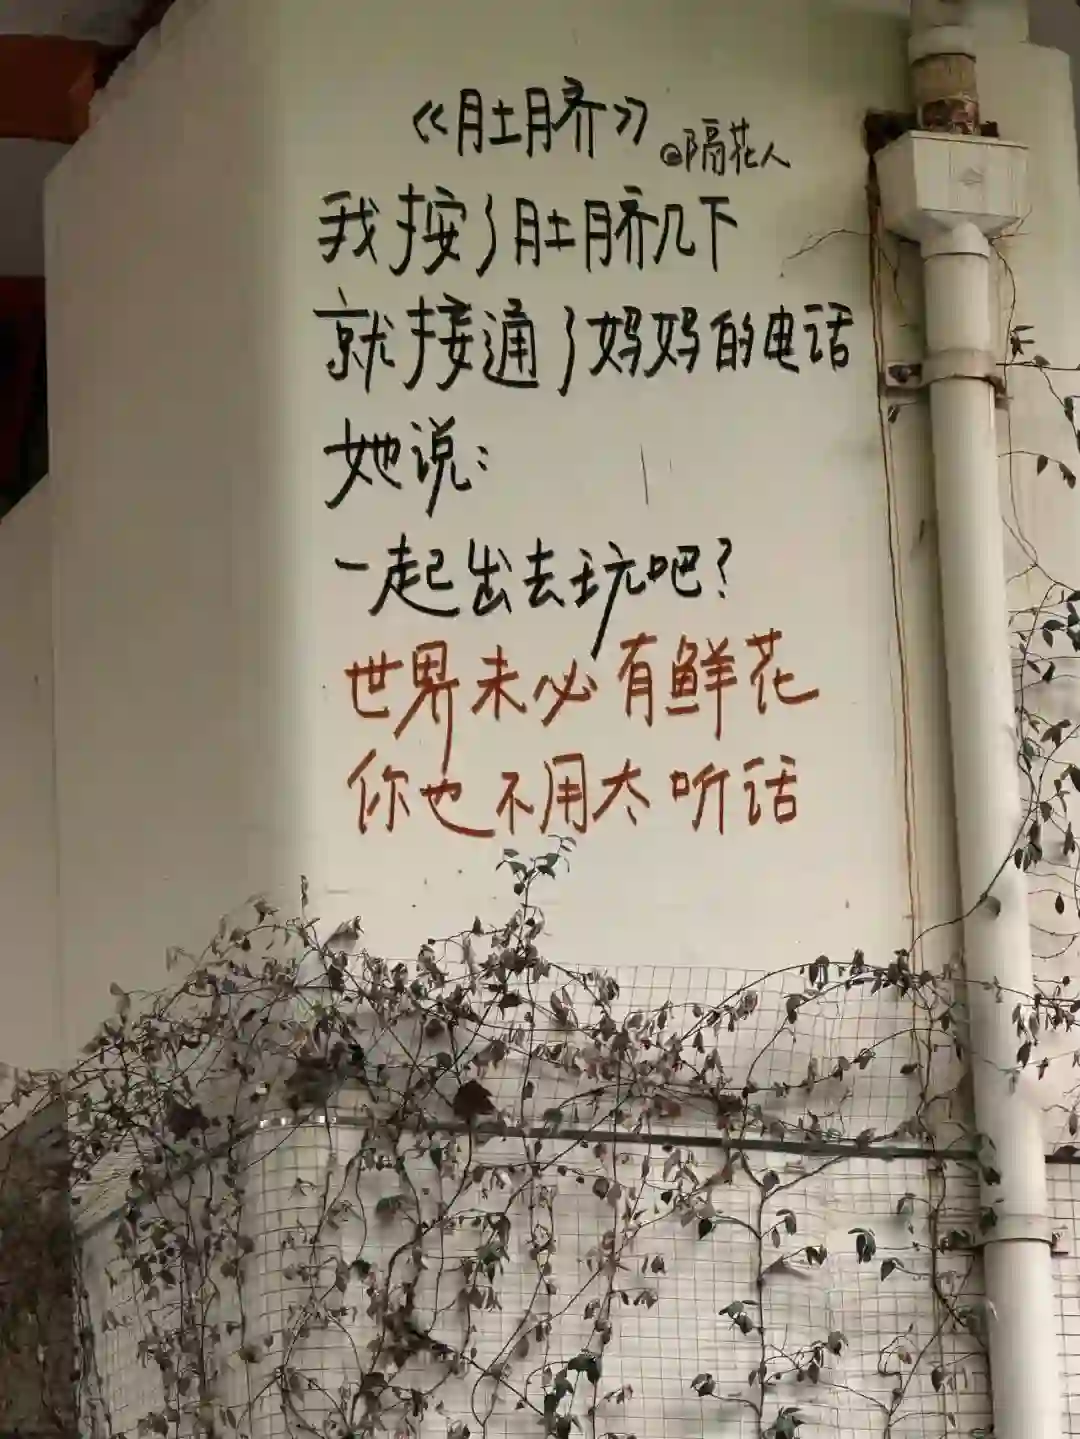 《肚脐》
@隔花人
我按了肚脐几下
就接通了妈妈的电话
她说:
一起出去玩吧?
世界未必有鲜花
你也不用太听话